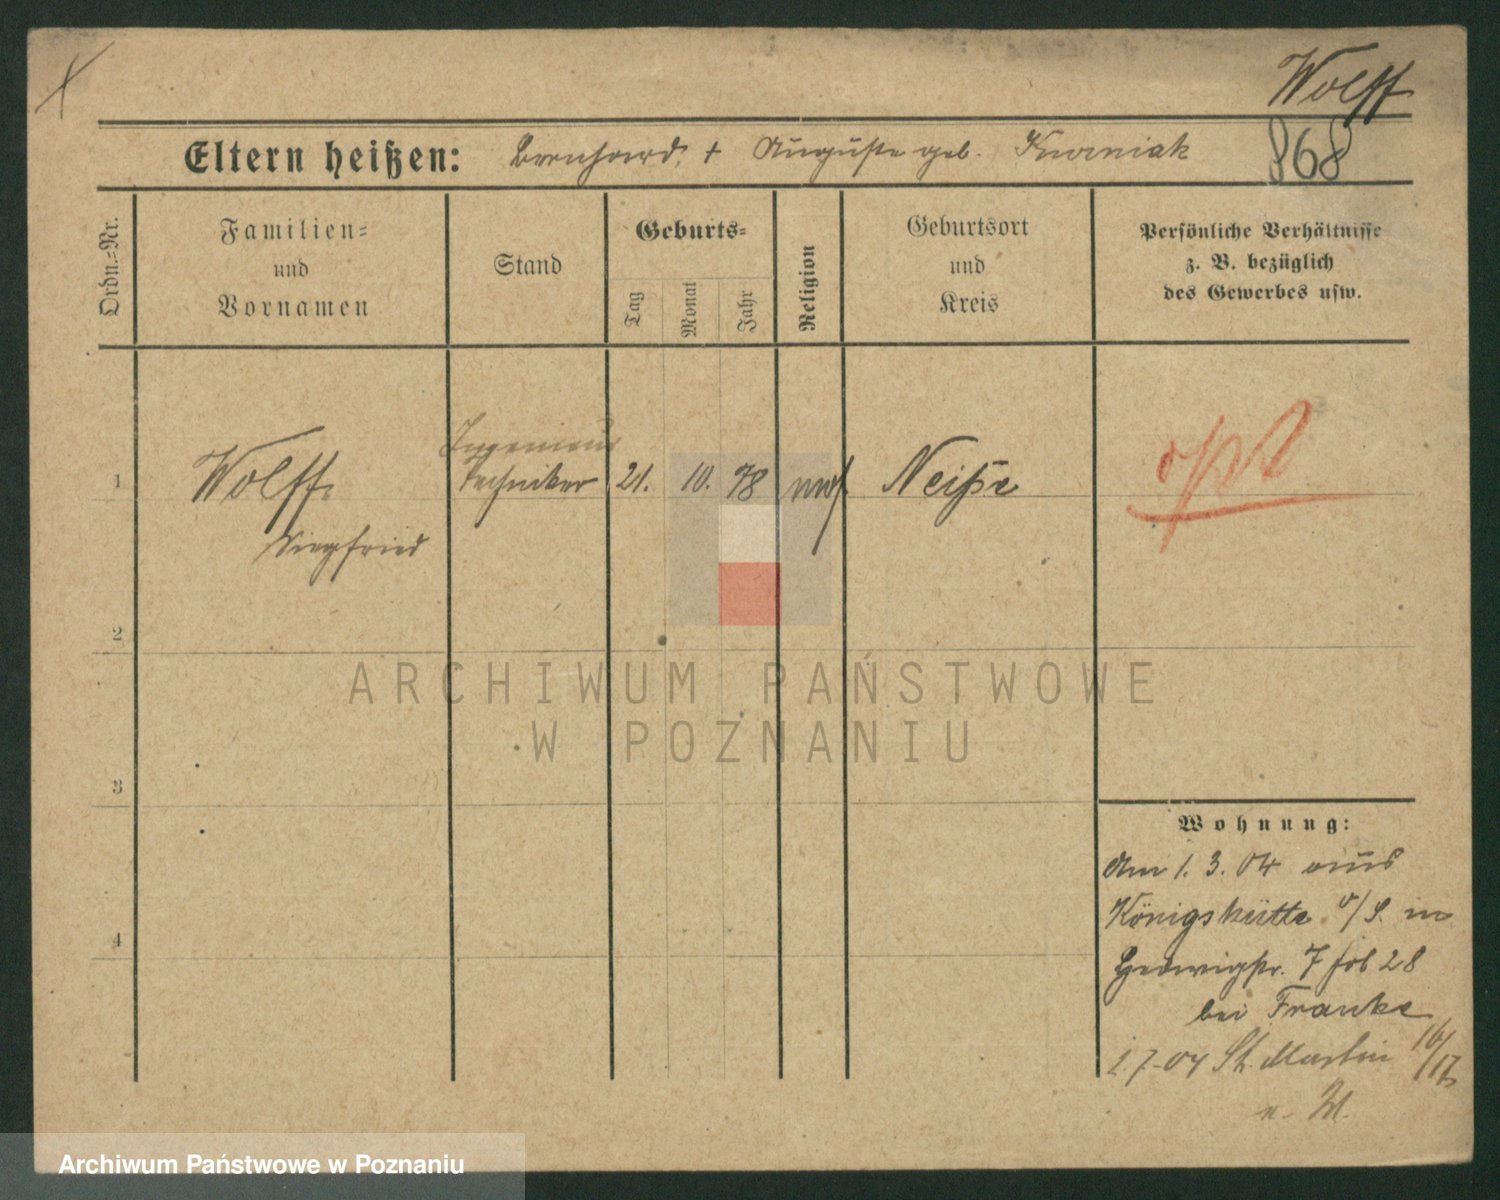 Wolff
868
Eltern heißen: Bernhard, + Auguste geb.
Ordn.-Nr.
Familien-
und
Vornamen
Stand
Geburts-
Tag
Monat
Jahr
Religion
Geburtsort
und
Kreis
Persönliche Verhältnisse
z. B. bezüglich
des Gewerbes usw.
Ingenieur
1 Wolff, Techniker 21. 10. 78 mos Neiße
Siegfried
2
3
4
Wohnung:
Am 1. 3. 04 aus
Königshütte O/S. in
Hedwigstr. 7 bei
bei Franke
2 7-04 St. Martin 16/17
ARCHIWUM PAŃSTWOWE
W POZNANIU
Archiwum Państwowe w Poznaniu